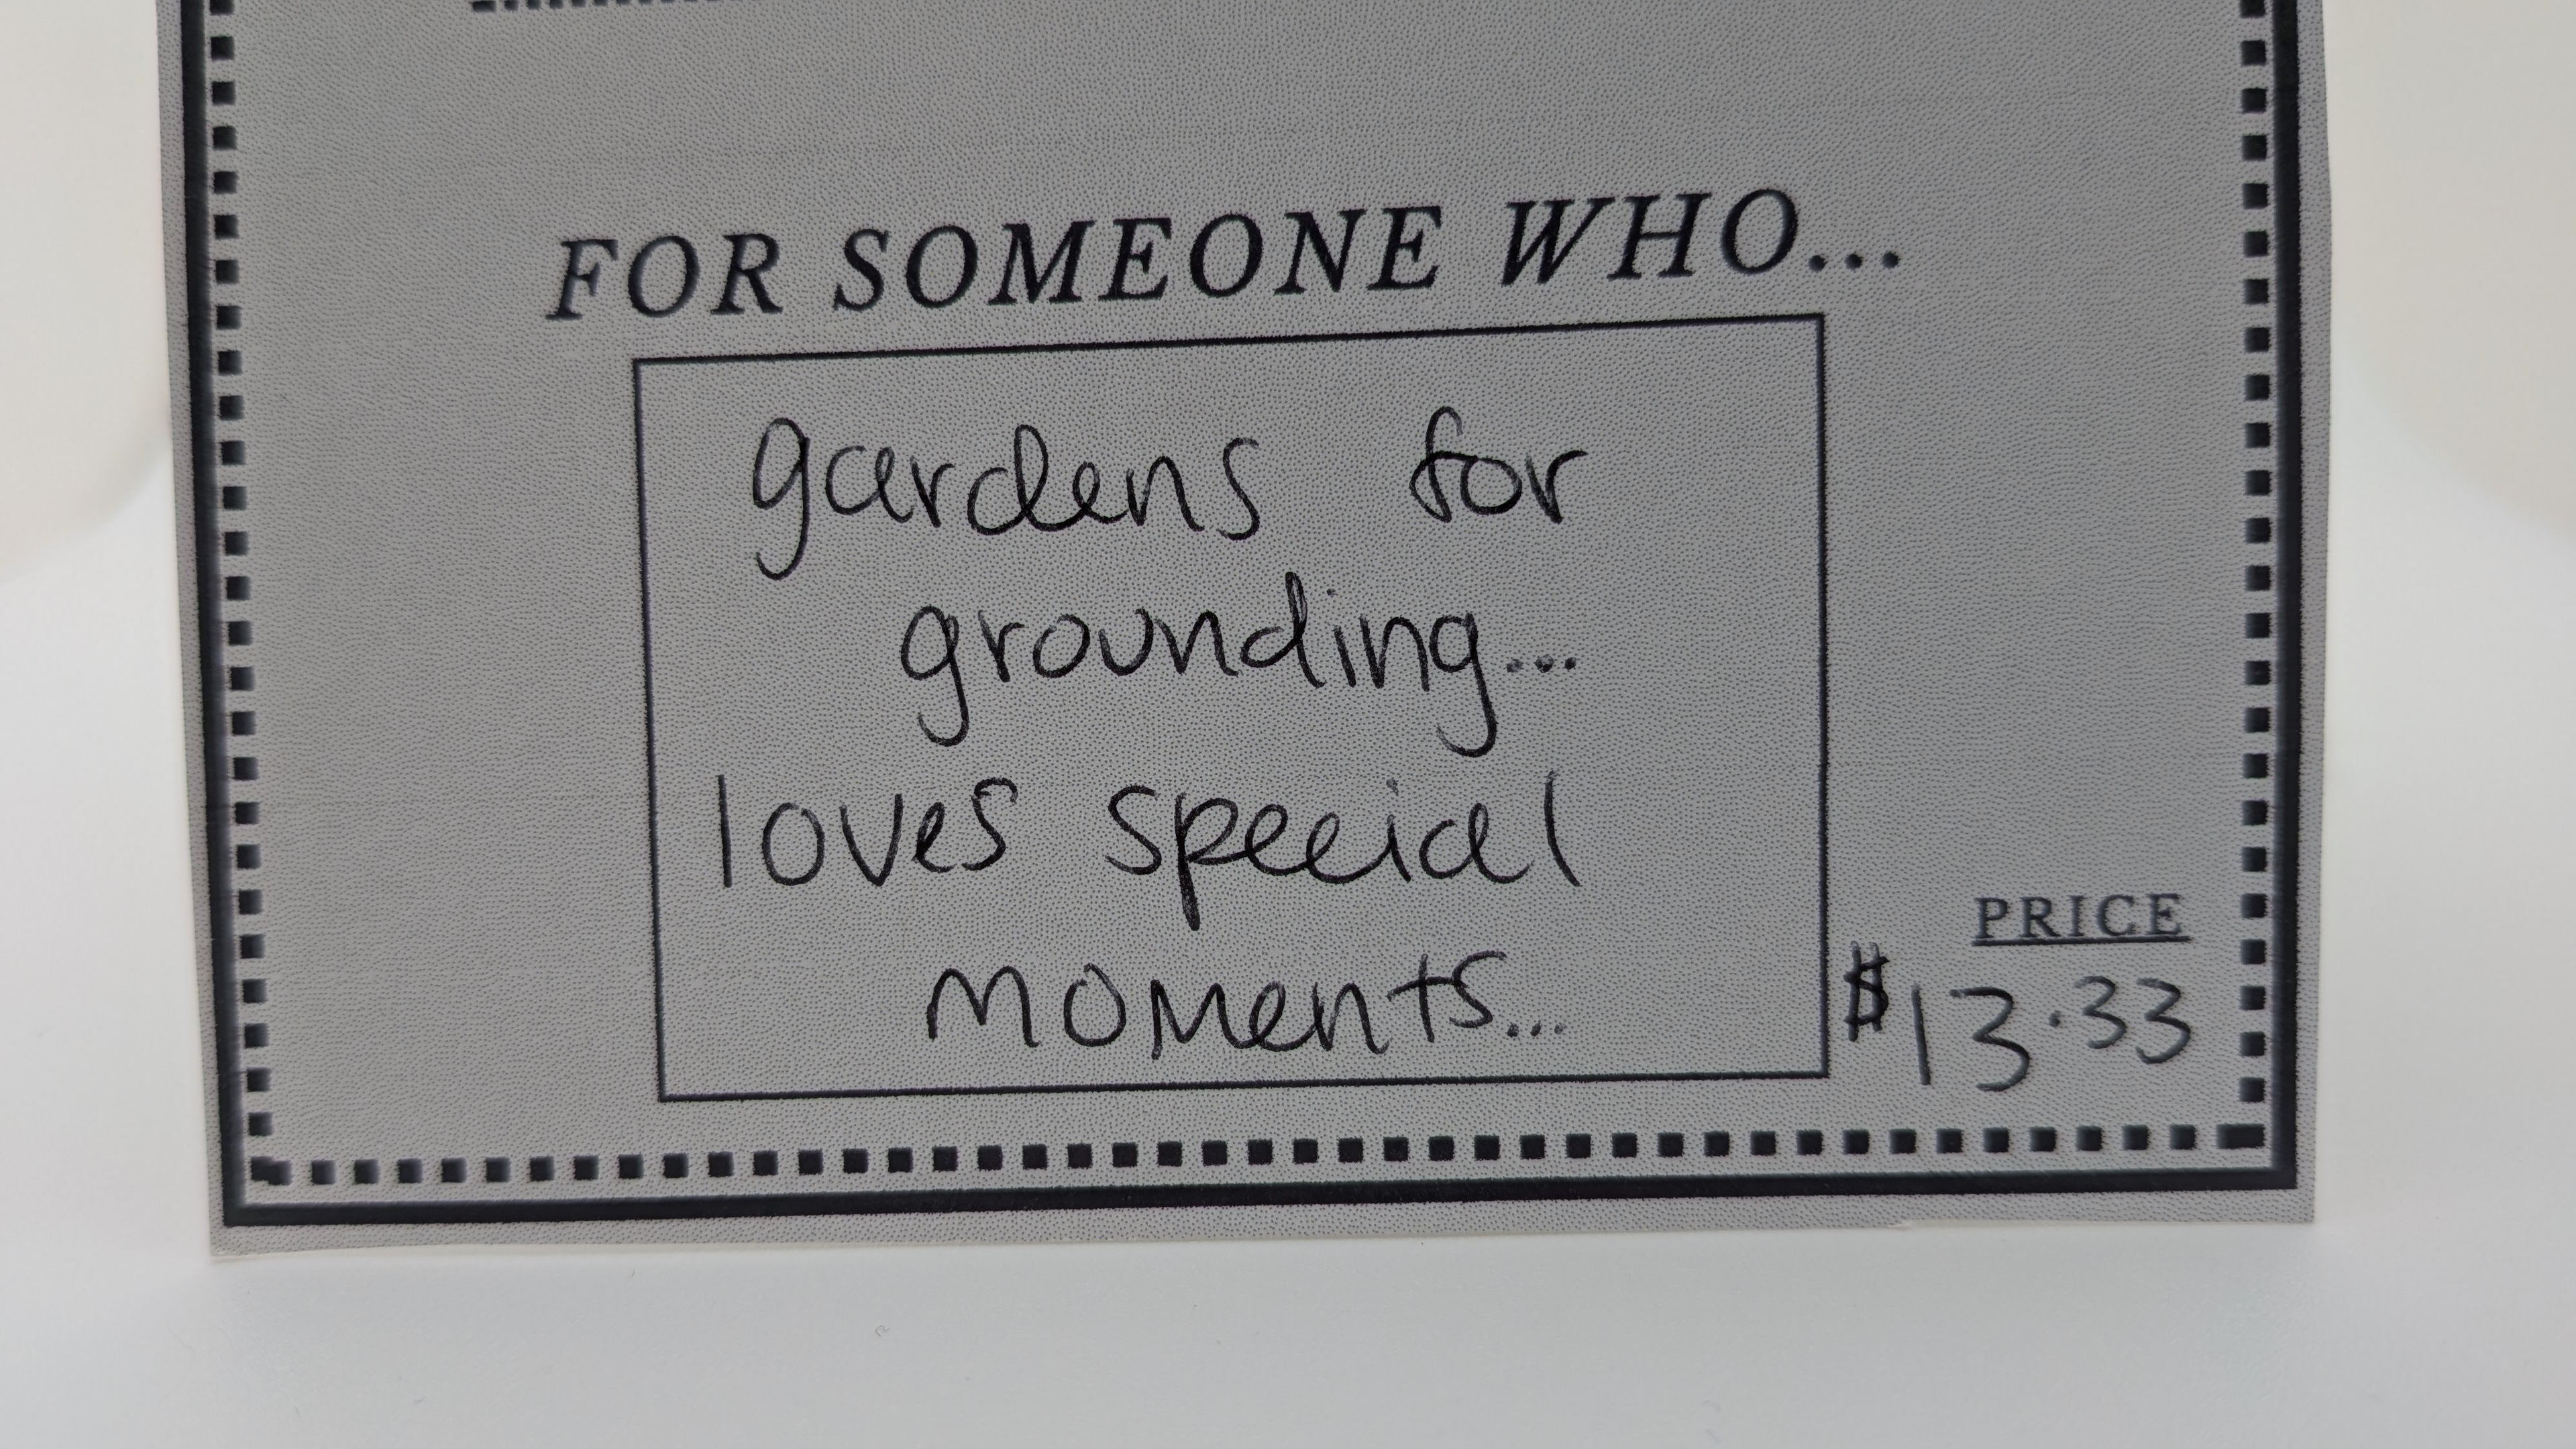 FOR SOMEONE WHO...
gardens for
grounding...
loves special
moments...
PRICE
$13.33